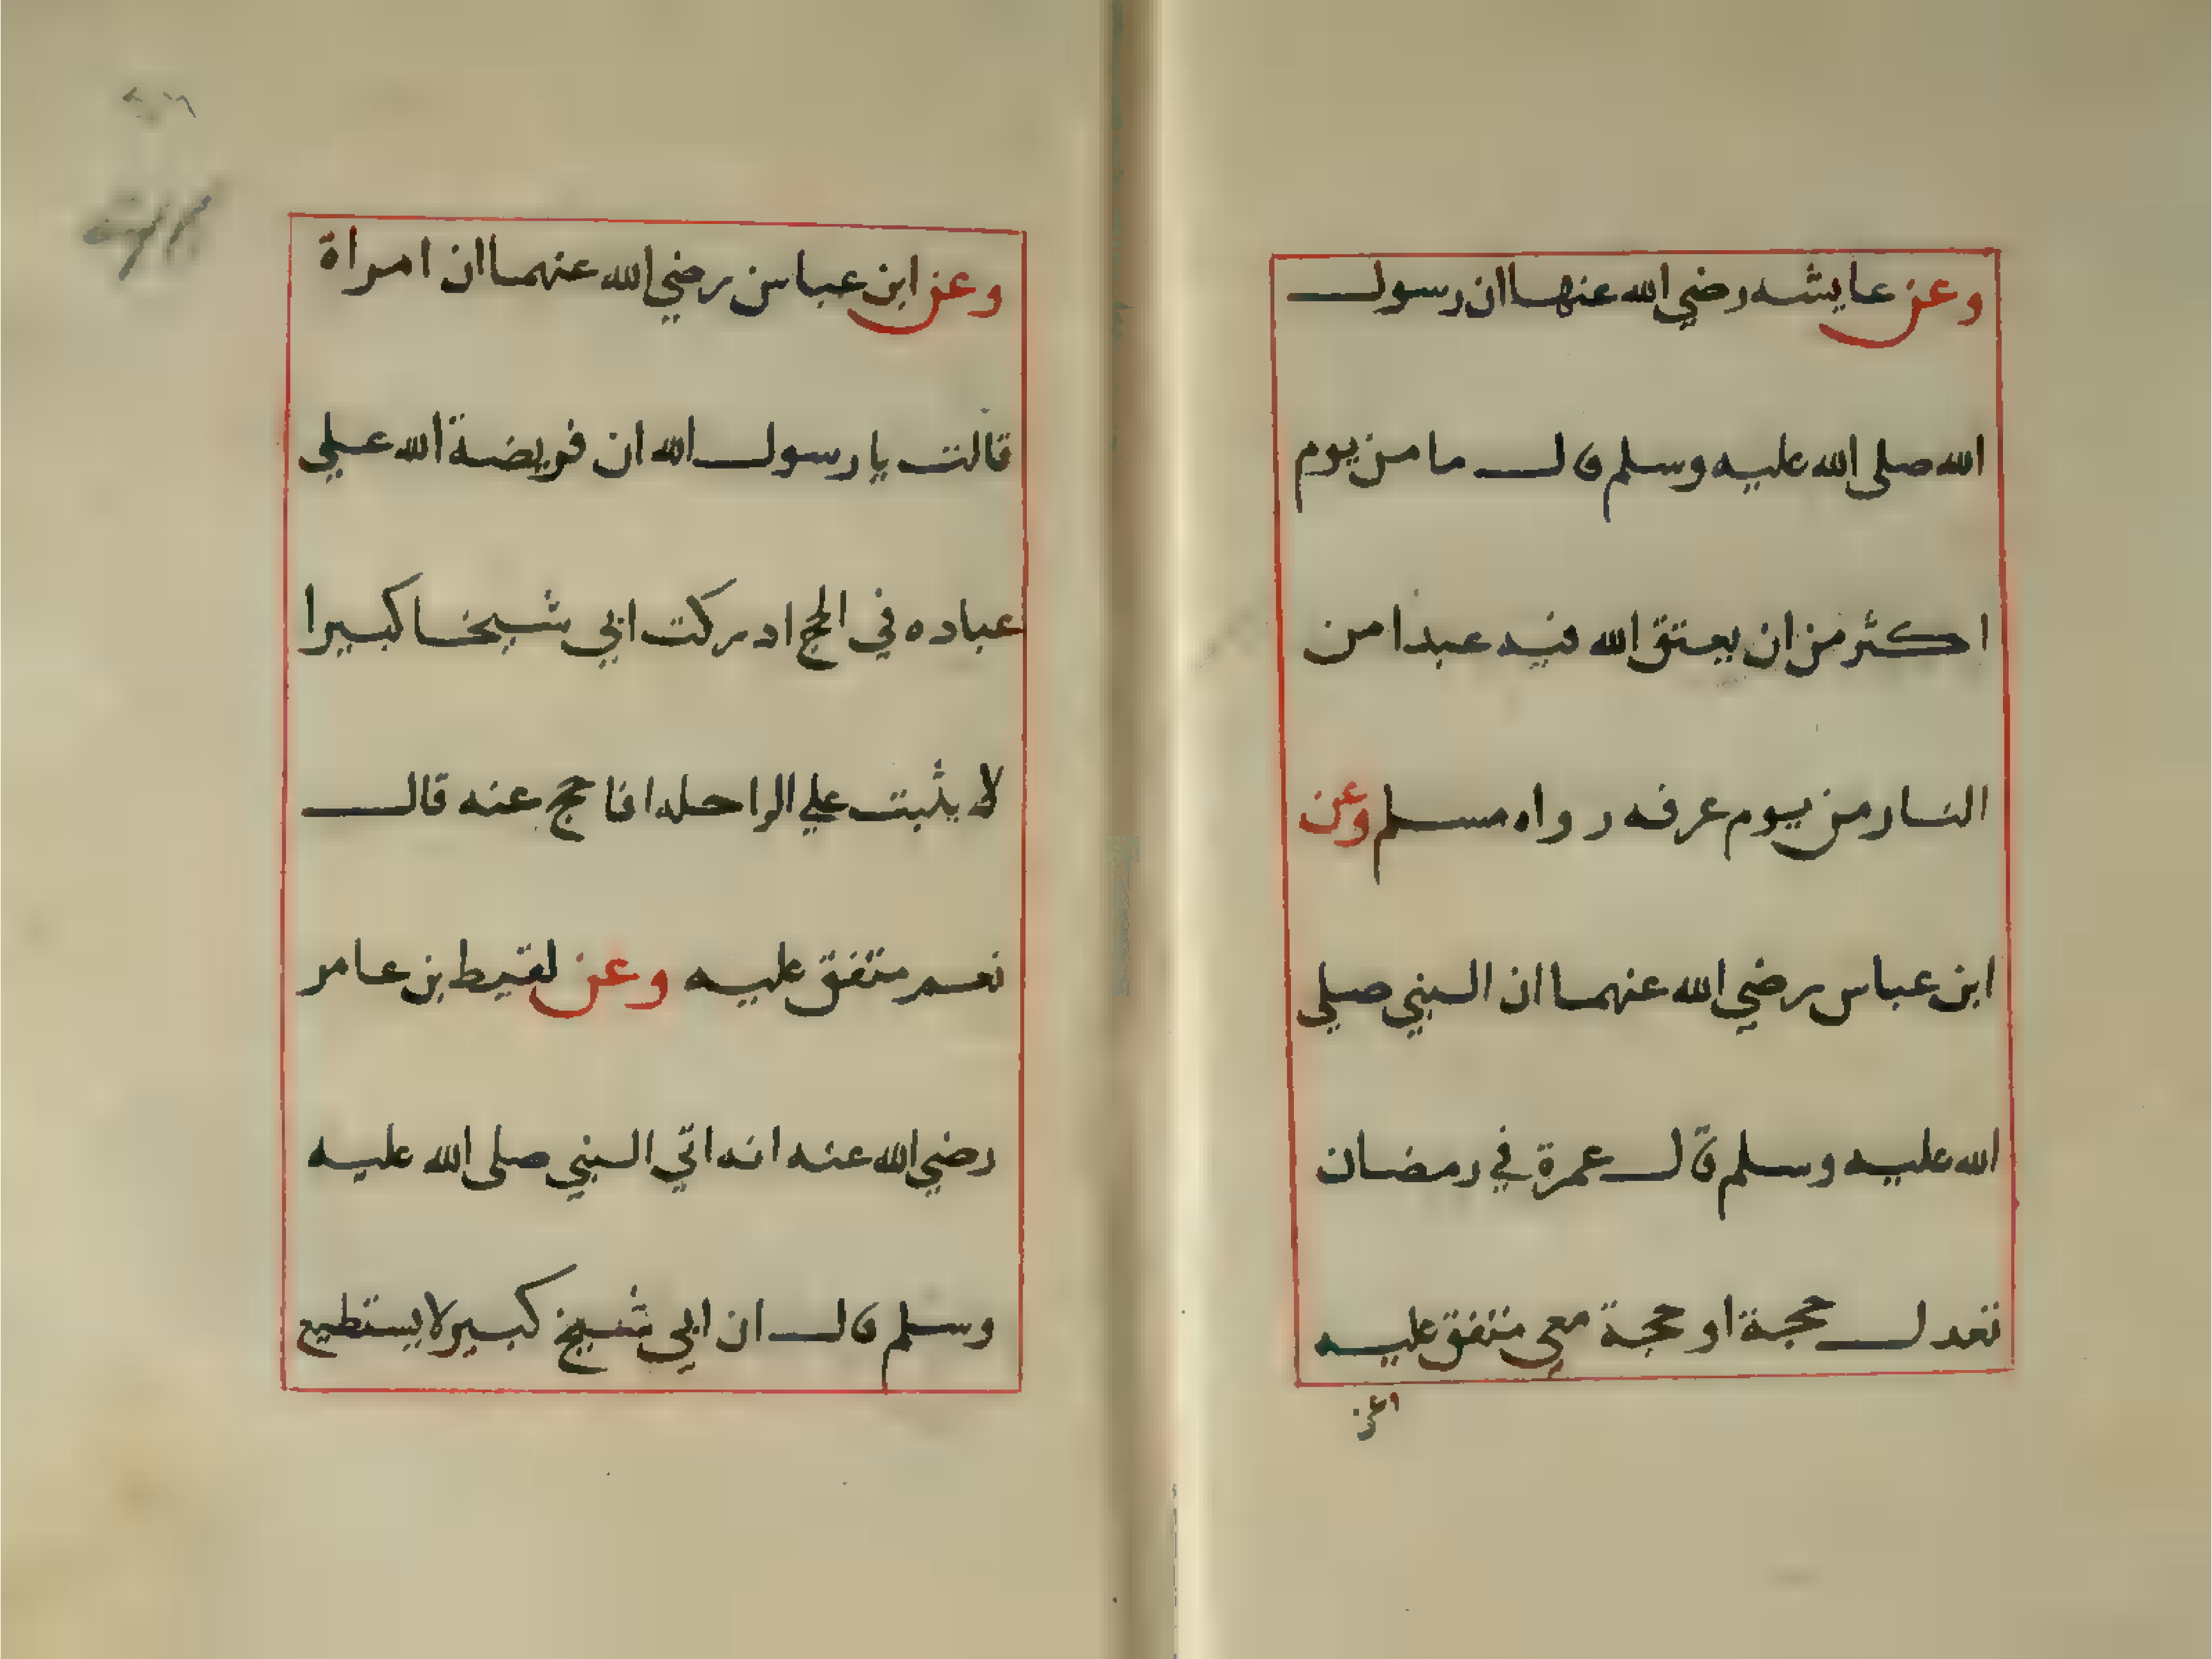 وعن عايشه رضي الله عنها ان رسول
الله صلى الله عليه وسلم قال ما من يوم
اكثر من ان يعتق الله فيه عبدا من
النار من يوم عرفه رواه مسلم وعن
ابن عباس رضي الله عنهما ان النبي صلى
الله عليه وسلم قال عمرة في رمضان
تعدل حجة او حجة معي متفق عليه
وعن
وعن ابن عباس رضي الله عنهما ان امراة
قالت يا رسول الله ان فريضة الله علي
عباده في الحج ادركت ابي شيخا كبيرا
لا يثبت علي الراحله افاحج عنه قال
نعم متفق عليه وعن لقيط بن عامر
رضي الله عنه انه اتي النبي صلى الله عليه
وسلم قال ان ابي شيخ كبير لا يستطيع